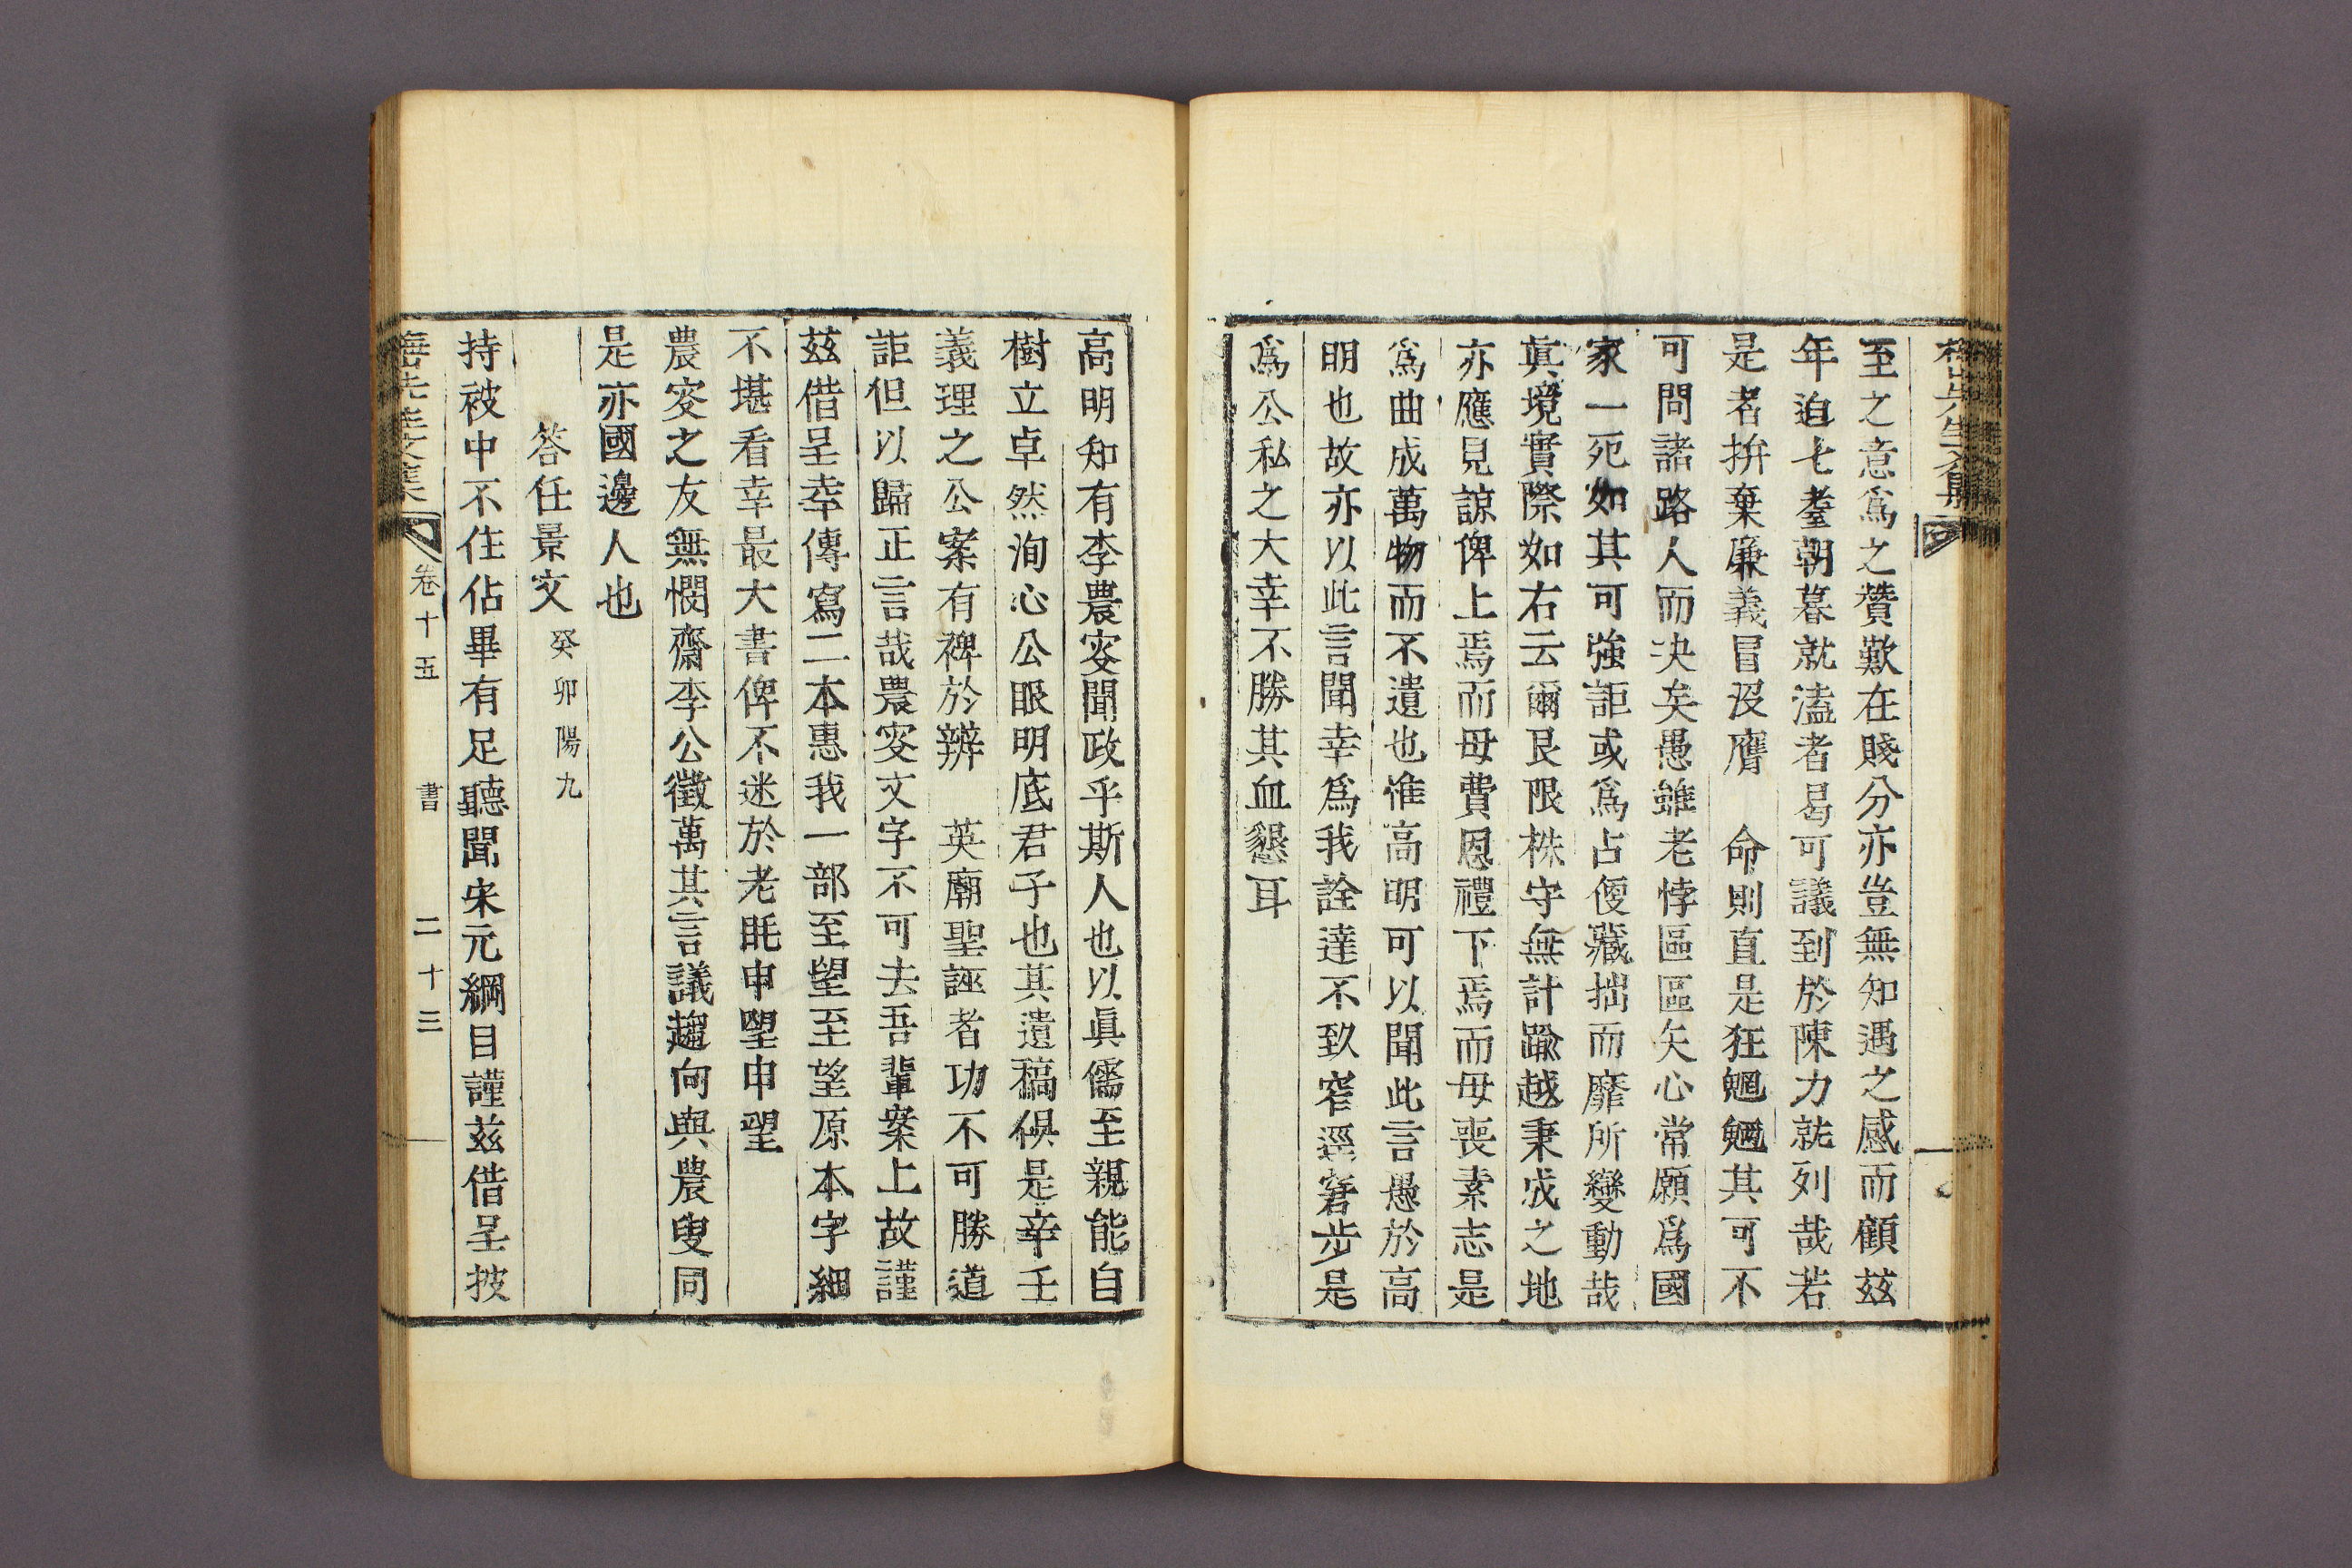 至之意爲之贊歎在賤分亦豈無知遇之感而顧玆
年迫七耋朝暮就溘者曷可議到於陳力就列哉若
是者拚棄廉義冒沒膺　命則直是狂魍魎其可不
可問諸路人而决矣愚雖老悖區區矢心常願爲國
家一死如其可強詎或爲占便藏拙而靡所變動哉
眞境實際如右云爾艮限株守無計踰越秉成之地
亦應見諒俾上焉而毋費恩禮下焉而毋喪素志是
爲曲成萬物而不遺也惟高明可以聞此言愚於高
明也故亦以此言聞幸爲我詮達不致窄逕窘步是
爲公私之大幸不勝其血懇耳
高明知有李農窔聞政乎斯人也以眞儒至親能自
樹立卓然洵心公眼明底君子也其遺稿俟是辛壬
義理之公案有裨於辨　英廟聖誣者功不可勝道
詎但以歸正言哉農窔文字不可去吾輩案上故謹
玆借呈幸傳寫二本惠我一部至望至望原本字細
不堪看幸最大書俾不迷於老眊申望申望
農窔之友無憫齋李公徵萬其言議趨向與農叟同
是亦國邊人也
答任景文 癸卯陽九
持被中不住佔畢有足聽聞宋元綱目謹玆借呈披
卷十五　書　二十三